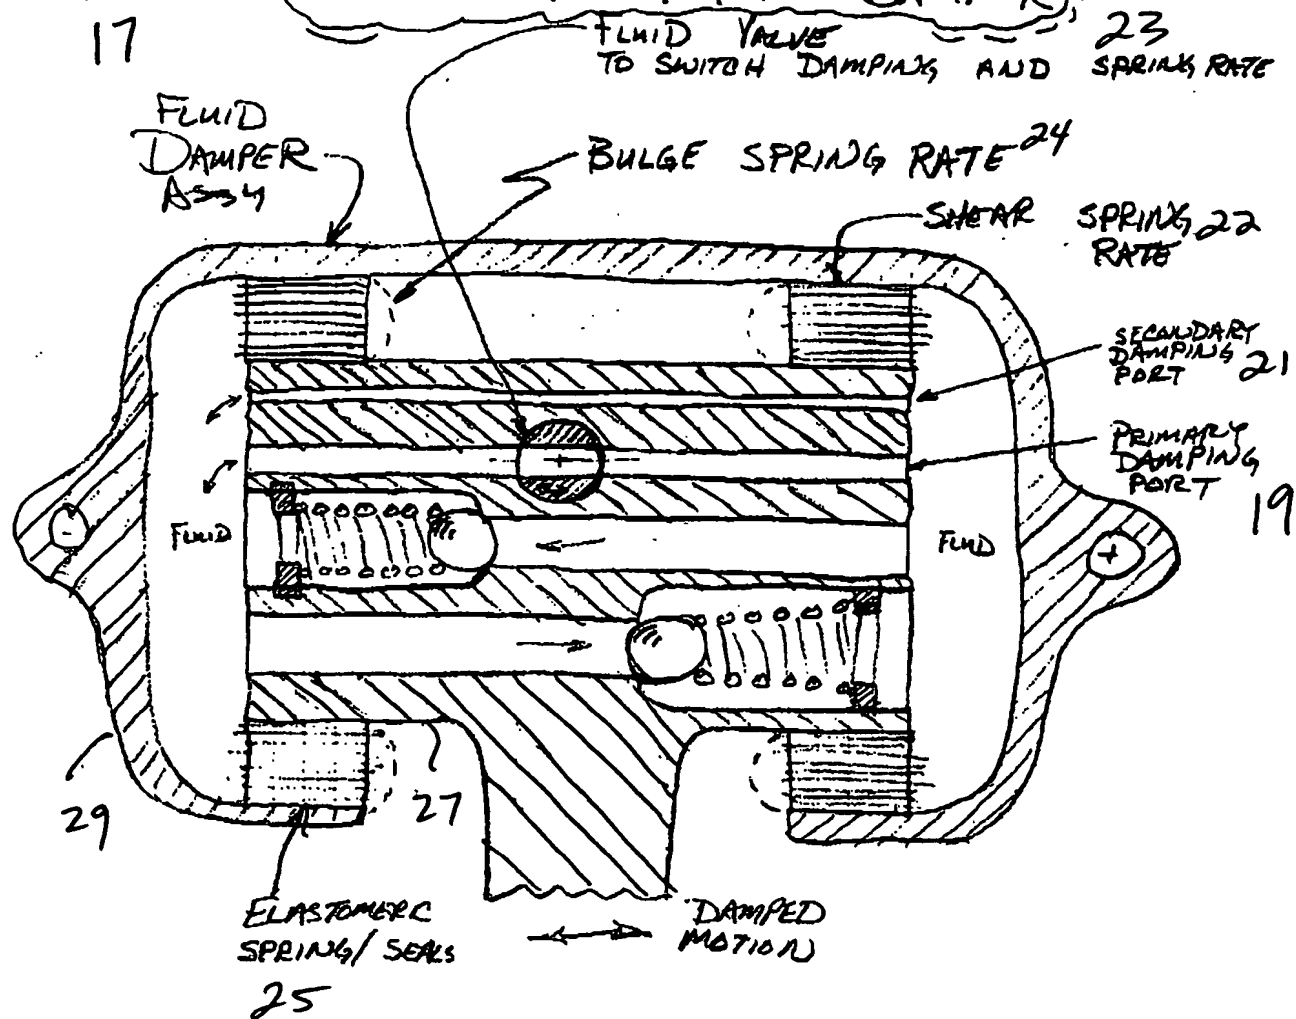 17
FLUID VALVE 23
TO SWITCH DAMPING AND SPRING RATE
FLUID
DAMPER
ASSY
BULGE SPRING RATE 24
SHEAR SPRING 22
RATE
SECONDARY
DAMPING
PORT 21
PRIMARY
DAMPING
PORT
19
FLUID
FLUID
29
27
ELASTOMERIC
SPRING/SEALS
25
DAMPED
MOTION